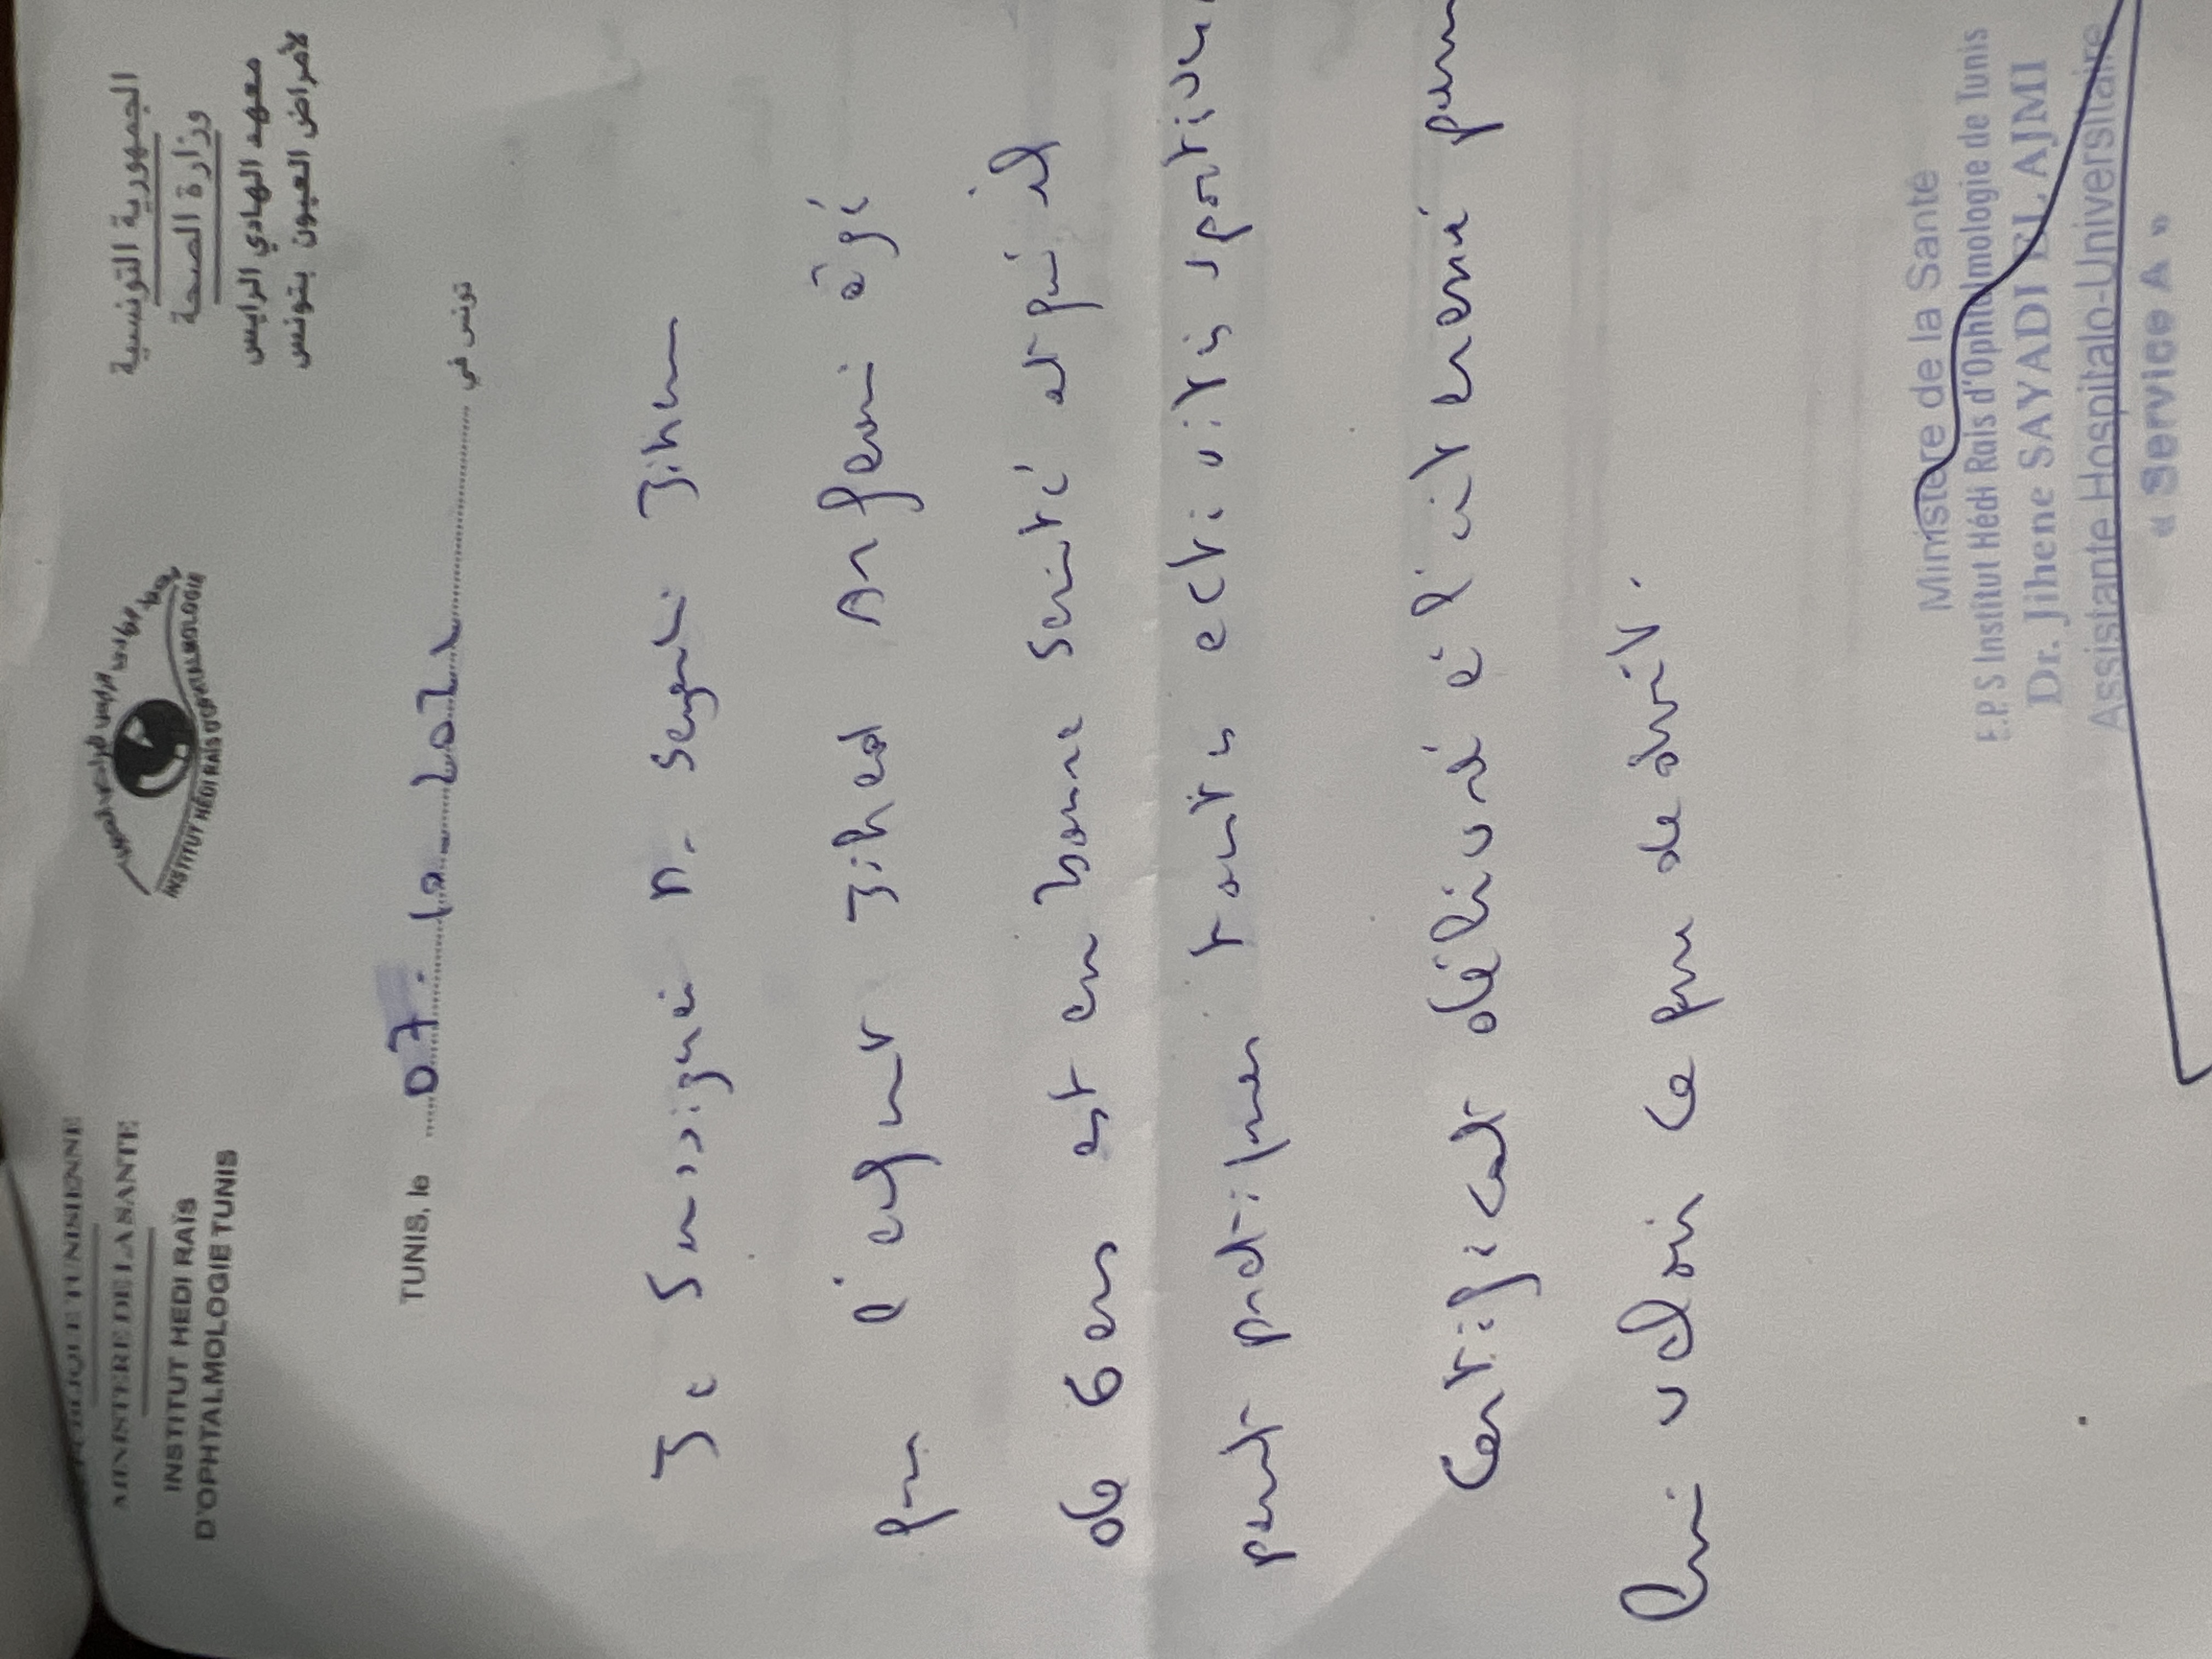 REPUBLIQUE TUNISIENNE
MINISTERE DE LA SANTE
INSTITUT HEDI RAÏS
D'OPHTALMOLOGIE TUNIS
INSTITUT HÉDI RAÏS D'OPHTALMOLOGIE
الجمهورية التونسية
وزارة الصحة
معهد الهادي الرايس
لأمراض العيون بتونس
TUNIS, le 07. 10 تونس في
Je Soussigné Dr Sayadi Jihen
que l'enfant Jihed âgé
de 6 ans est en bonne santé et qu'il
peut pratiquer toutes activités sportives
Certificat délivré à l'intéressé pour
lui valoir ce que de droit.
Ministère de la Santé
E.P.S Institut Hédi Raïs d'Ophtalmologie de Tunis
Dr. Jihene SAYADI EL AJMI
Assistante Hospitalo-Universitaire
« Service A »